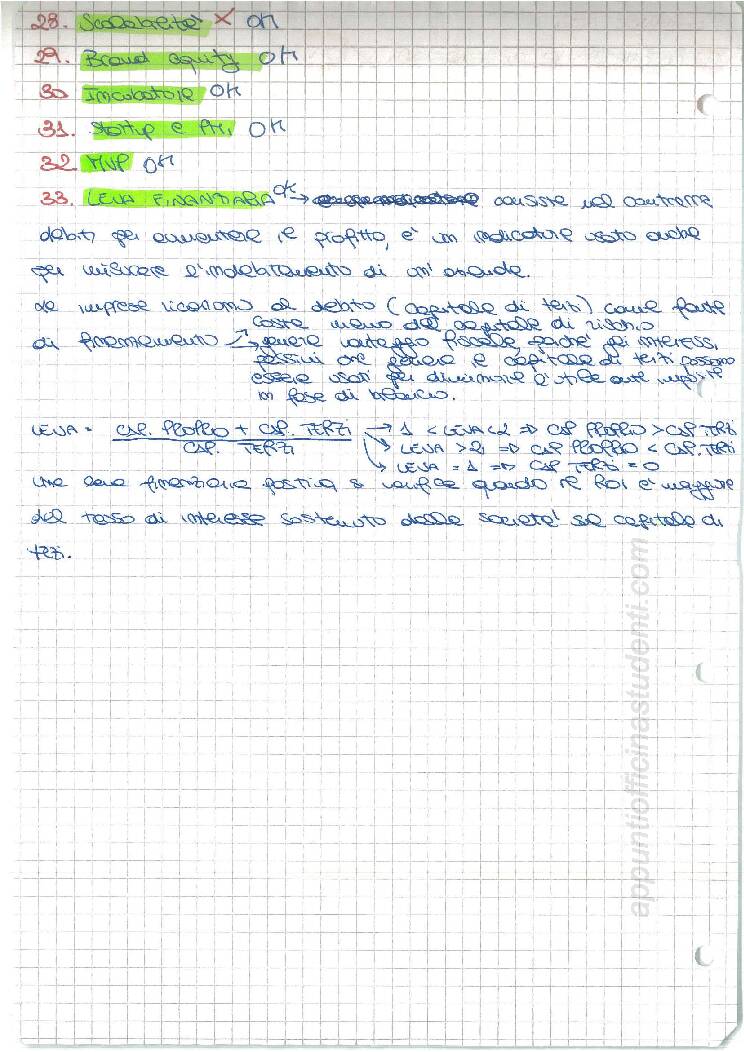 28. Scalabilità X OK
29. Brand equity OK
30 Incubatore OK
31. Startup e PMI OK
32 MVP OK
33. LEVA FINANZIARIA OK → consiste nel contrarre
debiti per aumentare il profitto, è un indicatore usato anche
per misurare l'indebitamento di un'azienda.
Le imprese ricorrono al debito (capitale di terzi) come fonte
di finanziamento ↗ costa meno del capitale di rischio
→ genera vantaggio fiscale perché gli interessi
passivi che genera il capitale di terzi possono
essere usati per diminuire l'utile ante imposte
in fase di bilancio.
LEVA = CAP. PROPRIO + CAP. TERZI / CAP. TERZI → 1 < LEVA < 2 => CAP PROPRIO > CAP. TERZI
↘ LEVA > 2 => CAP PROPRIO < CAP. TERZI
↘ LEVA = 1 => CAP TERZI = 0
Una leva finanziaria positiva si verifica quando il ROI è maggiore
del tasso di interesse sostenuto dalla società sul capitale di
terzi.
appuntiofficinastudenti.com